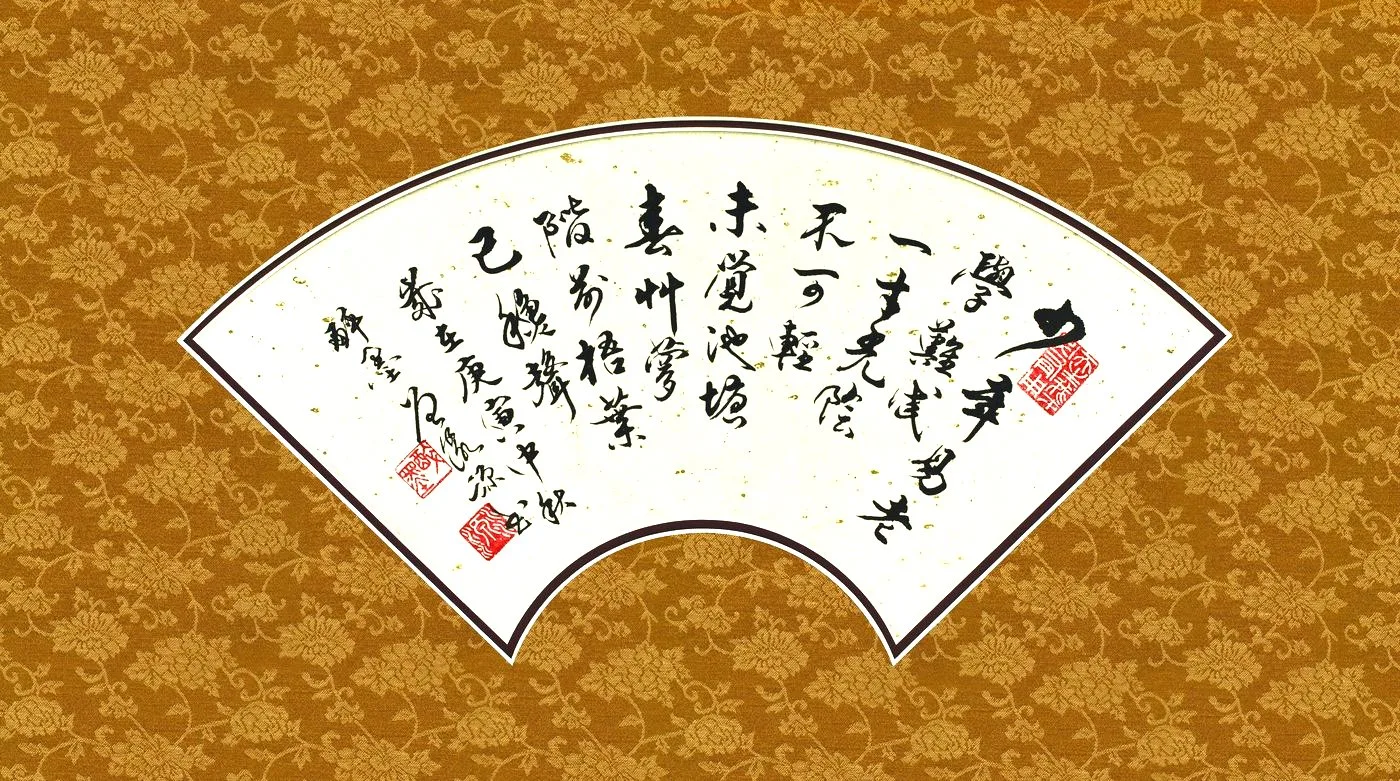 少年易老
學難成
一寸光陰
不可輕
未覺池塘
春艸夢
階前梧葉
已穐聲
歲在庚寅中秋
醉墨 書